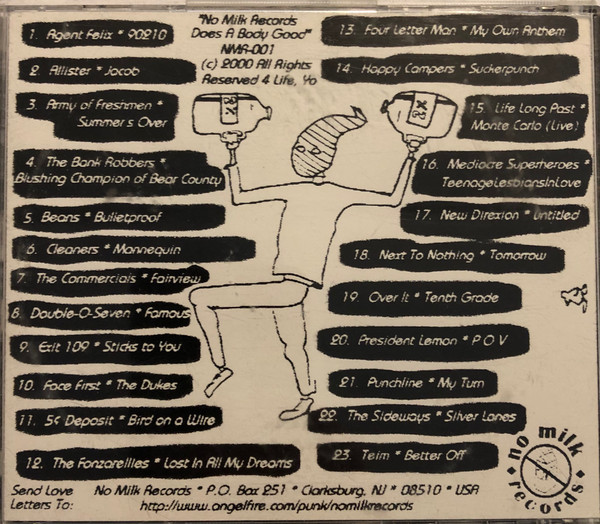 "No Milk Records
Does A Body Good"
NMR-001
(c) 2000 All Rights
Reserved 4 Life, Yo
1. Agent Felix * 90210
2. Allister * Jacob
3. Army of Freshmen *
Summer's Over
4. The Bank Robbers *
Blushing Champion of Bear County
5. Beans * Bulletproof
6. Cleaners * Mannequin
7. The Commercials * Fairview
8. Double-O-Seven * Famous
9. Exit 109 * Sticks to You
10. Face First * The Dukes
11. 5¢ Deposit * Bird on a Wire
12. The Fonzarellies * Lost In All My Dreams
13. Four Letter Man * My Own Anthem
14. Happy Campers * Suckerpunch
15. Life Long Past *
Monte Carlo (Live)
16. Mediocre Superheroes *
TeenageLesbiansInLove
17. New Direxion * untitled
18. Next To Nothing * Tomorrow
19. Over It * Tenth Grade
20. President Lemon * P O V
21. Punchline * My Turn
22. The Sideways * Silver Lanes
23. Teim * Better Off
no milk
records
Send Love
Letters To:
No Milk Records * P.O. Box 251 * Clarksburg, NJ * 08510 * USA
http://www.angelfire.com/punk/nomilkrecords